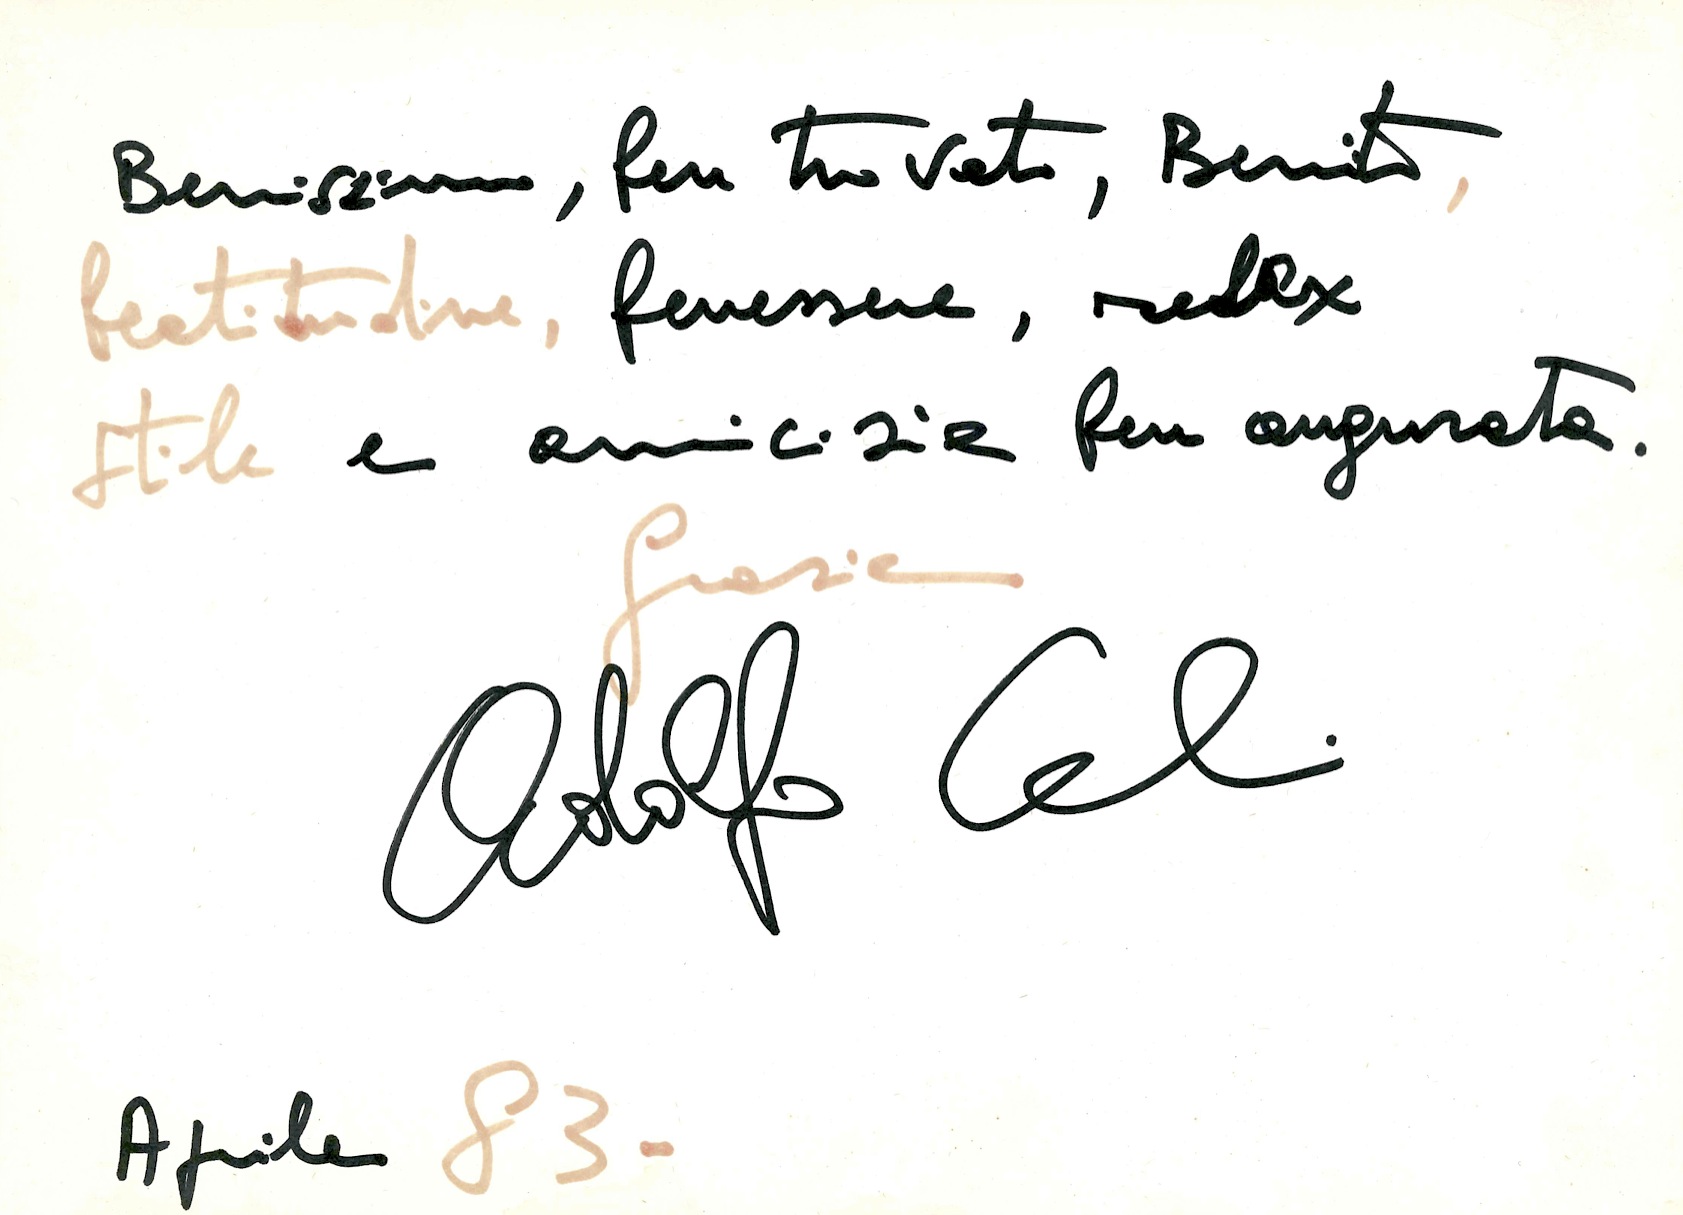 Benissimo, ben trovato, Benito,
beatitudine, benessere, relax
stile e amicizia ben augurata.
Grazie
Adolfo Celi
Aprile 83-